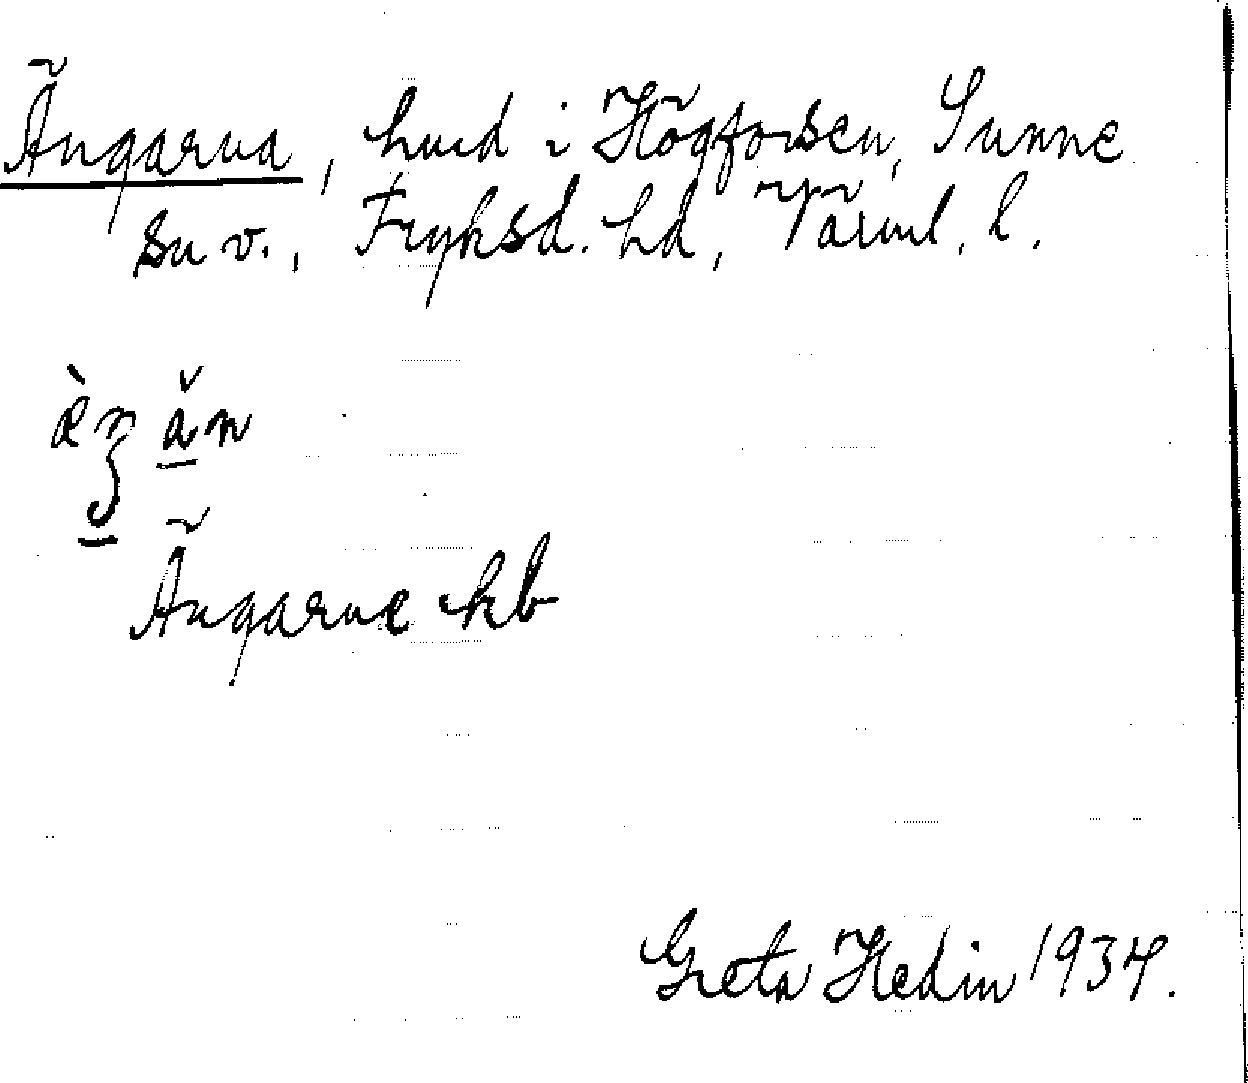 Ängarna, hmd i Högforsen, Sunne
sn v., Fryksd. hd, Värml. l.
Ängarne hb
Greta Hedin 1934.